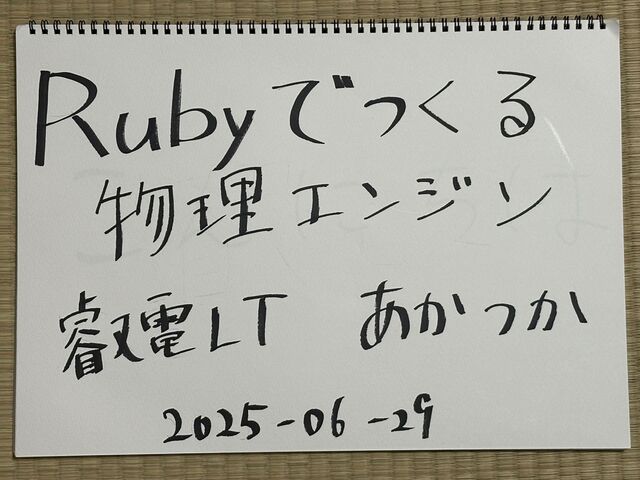 Rubyでつくる
物理エンジン
叡電LT あかつか
2025-06-29